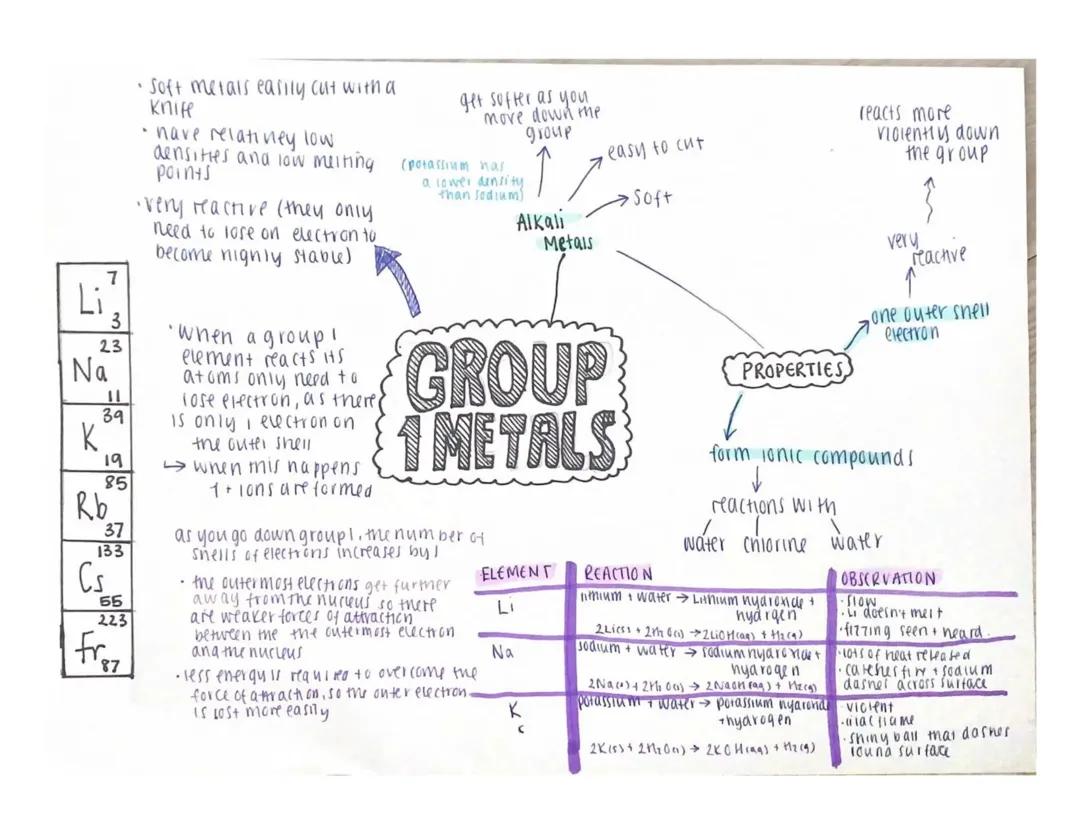 • soft metals easily cut with a
knife
• have relativley low
densities and low melting
points
• very reactive (they only
need to lose on electron to
become highly stable)
get softer as you
move down the
group
(potassium has
a lower density
than sodium)
easy to cut
soft
Alkali
Metals
reacts more
violently down
the group
very
reactive
one outer shell
electron
PROPERTIES
GROUP
1 METALS
7
Li
3
23
Na
11
39
K
19
85
Rb
37
133
Cs
55
223
Fr
87
• When a group 1
element reacts its
atoms only need to
lose electron, as there
is only 1 electron on
the outer shell
↳ when this happens
1+ ions are formed
form ionic compounds
reactions with
water chlorine water
as you go down group 1, the number of
shells of electrons increases by 1
• the outermost electrons get further
away from the nucleus so there
are weaker forces of attraction
between the the outermost electron
and the nucleus
• less energy is required to overcome the
force of attraction, so the outer electron
is lost more easily
ELEMENT REACTION OBSERVATION
Li
lithium + water → Lithium hydroxide +
hydrgen
2Li(s) + 2H₂O(l) → 2LiOH(aq) + H₂(g)
• slow
• Li doesn't melt
• fizzing seen + heard
Na
sodium + water → sodium hydroxide +
hydrogen
2Na(s) + 2H₂O(l) → 2NaOH(aq) + H₂(g)
• lots of heat released
• catches fire + sodium
dashes across surface
K
c
potassium + water → potassium hydroxide
+ hydrogen
2K(s) + 2H₂O(l) → 2KOH(aq) + H₂(g)
• violent
• lilac flame
• shiny ball that dashes
round surface